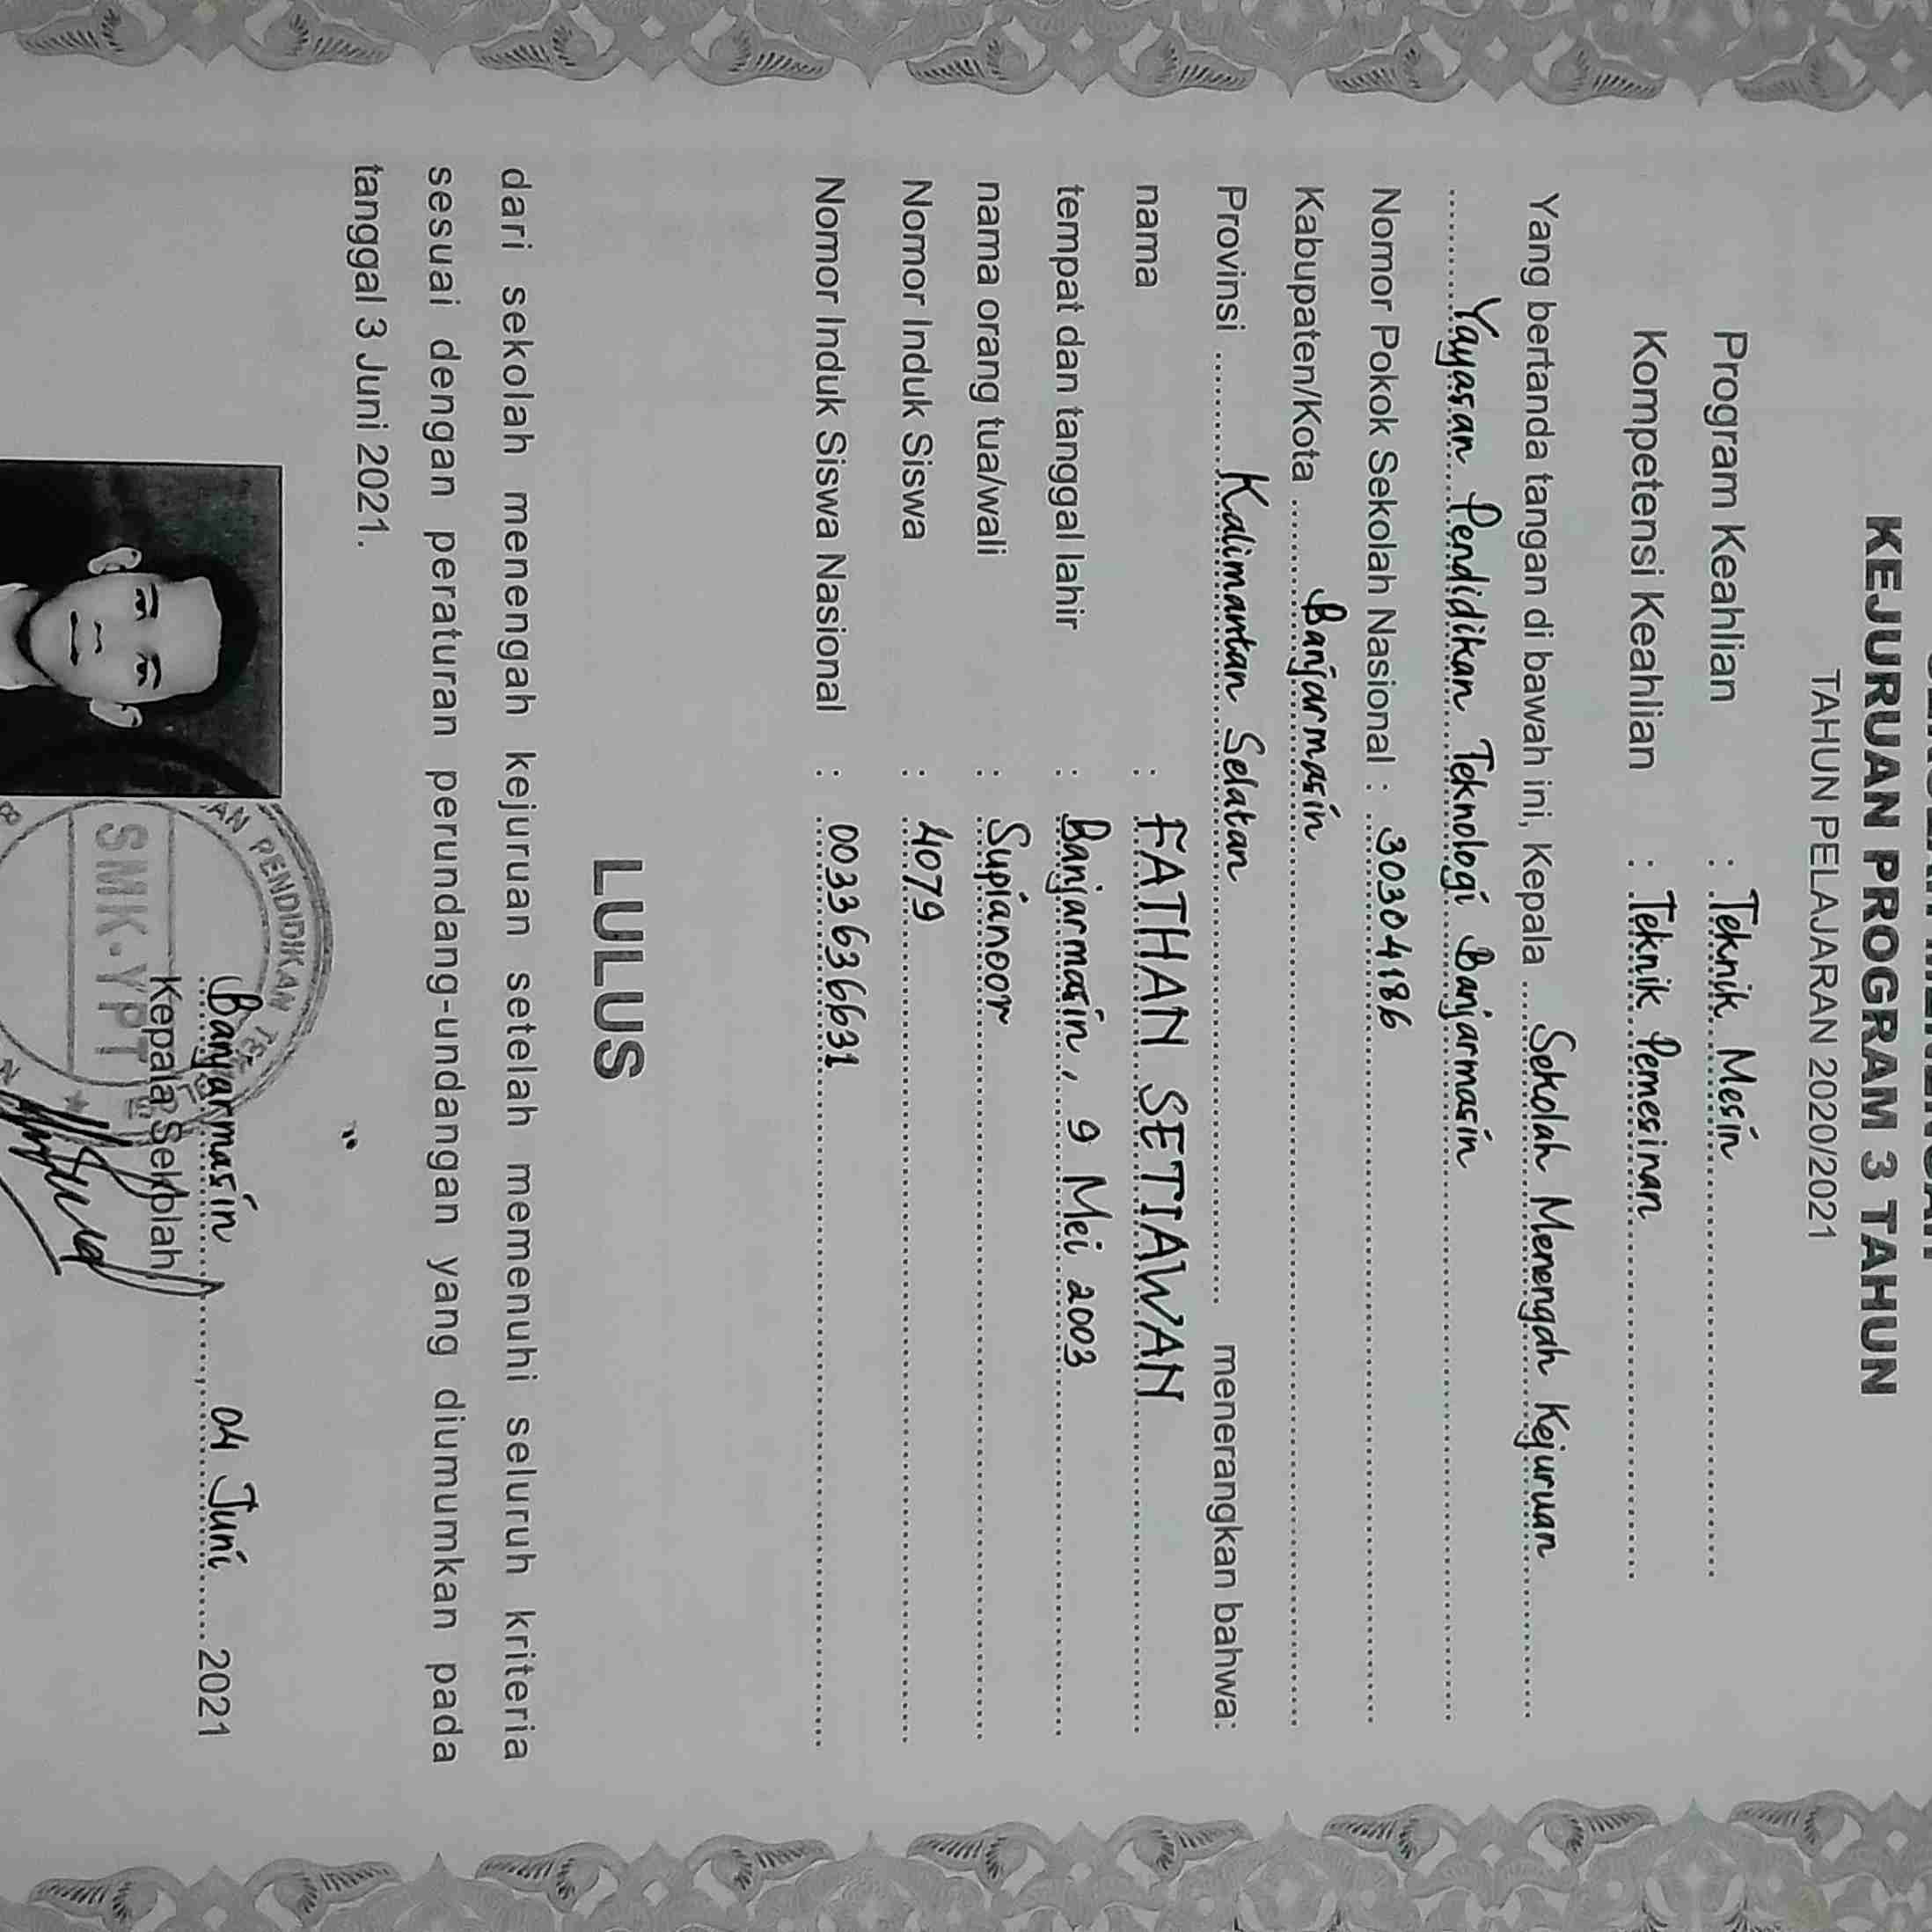 KEJURUAN PROGRAM 3 TAHUN
TAHUN PELAJARAN 2020/2021
Program Keahlian : Teknik Mesin
Kompetensi Keahlian : Teknik Pemesinan
Yang bertanda tangan di bawah ini, Kepala Sekolah Menengah Kejuruan
Yayasan Pendidikan Teknologi Banjarmasin
Nomor Pokok Sekolah Nasional : 30304186
Kabupaten/Kota Banjarmasin
Provinsi Kalimantan Selatan menerangkan bahwa:
nama : FATHAN SETIAWAN
tempat dan tanggal lahir : Banjarmasin, 9 Mei 2003
nama orang tua/wali : Supianoor
Nomor Induk Siswa : 4079
Nomor Induk Siswa Nasional : 0033636631
LULUS
dari sekolah menengah kejuruan setelah memenuhi seluruh kriteria
sesuai dengan peraturan perundang-undangan yang diumumkan pada
tanggal 3 Juni 2021.
Banjarmasin, 04 Juni 2021
Kepala Sekolah
PENDIDIKAN
SMK-YPT